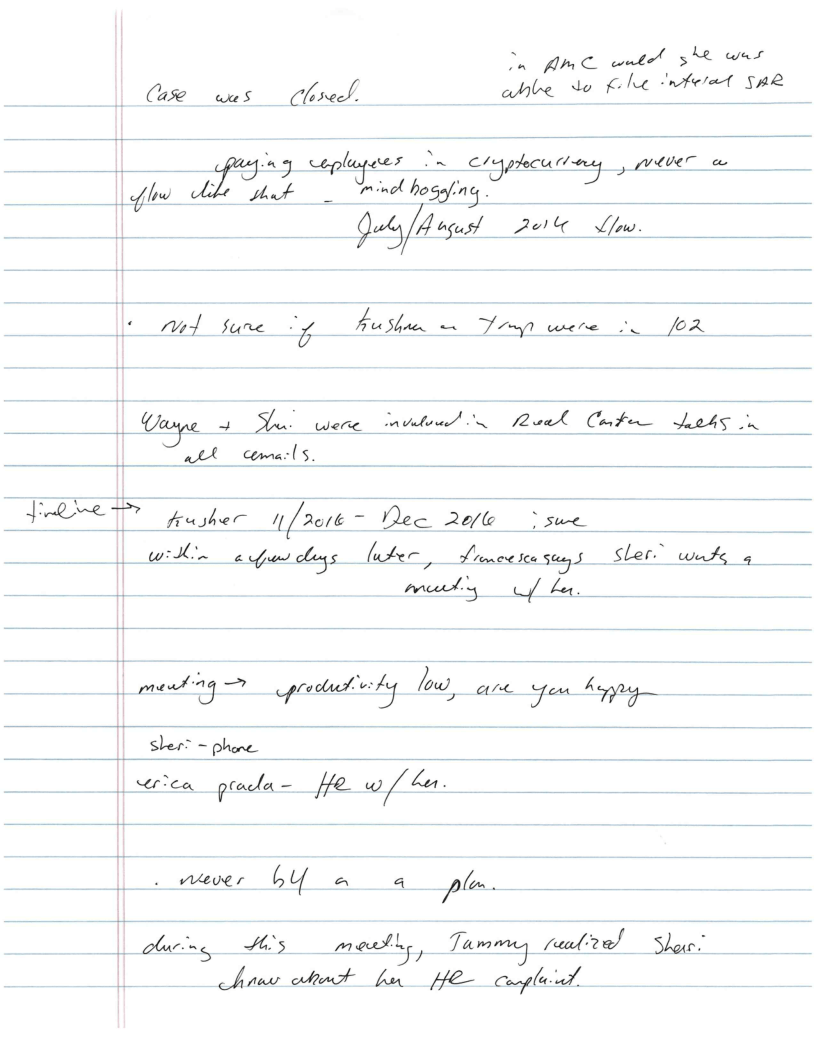 in AMC would she was
able to file internal SAR
Case was closed.
paying employees in cryptocurrency, never a
flow like that - mind boggling.
July/August 2016 flow.
. Not sure if Kushner or Trump were in 102
Wayne + Sheri were involved in Real Center talks in
all emails.
timeline → Kushner 11/2016 - Dec 2016 issue
within a few days later, francesca says sheri wants a
meeting w/ her.
meeting → productivity low, are you happy
sheri - phone
erica prada - HR w/ her.
. never b4 on a plan.
during this meeting, Tammy realized Sheri
knew about her HR complaint.